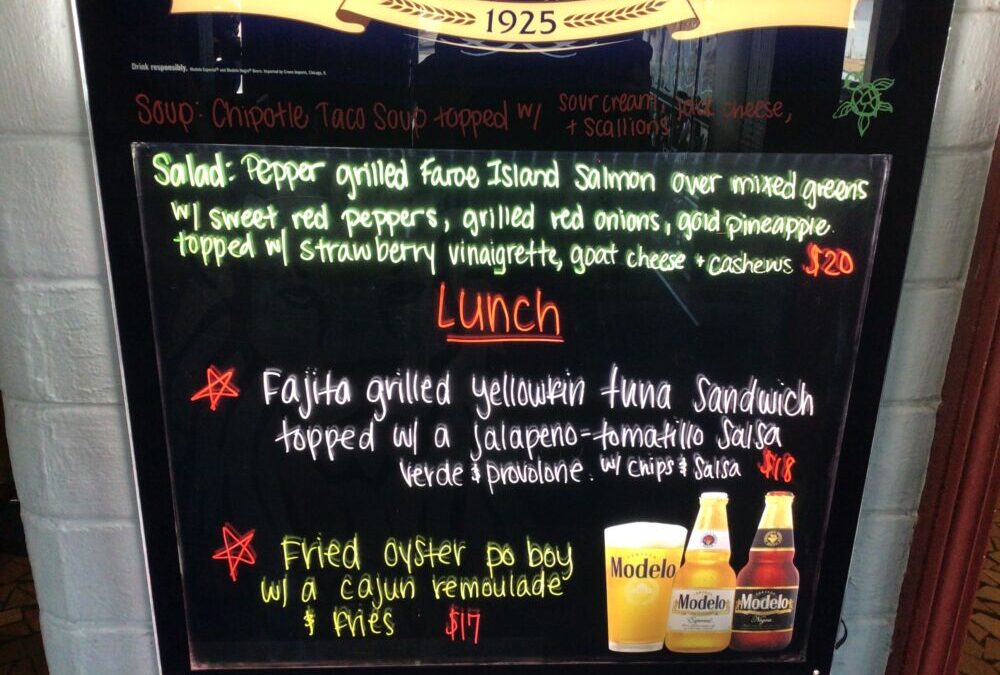 1925
Drink responsibly. Modelo Especial® and Modelo Negra® Beers. Imported by Crown Imports, Chicago, IL
Soup: Chipotle Taco Soup topped w/ sour cream, jack cheese,
+ scallions
Salad: Pepper grilled Faroe Island Salmon over mixed greens
w/ sweet red peppers, grilled red onions, gold pineapple
topped w/ strawberry vinaigrette, goat cheese + cashews $20
Lunch
Fajita grilled yellowfin tuna Sandwich
topped w/ a jalapeno-tomatillo Salsa
verde & provolone. w/ chips & Salsa $18
Fried oyster po boy
w/ a cajun remoulade
& fries $17
Modelo
Modelo
Especial
Modelo
Negra